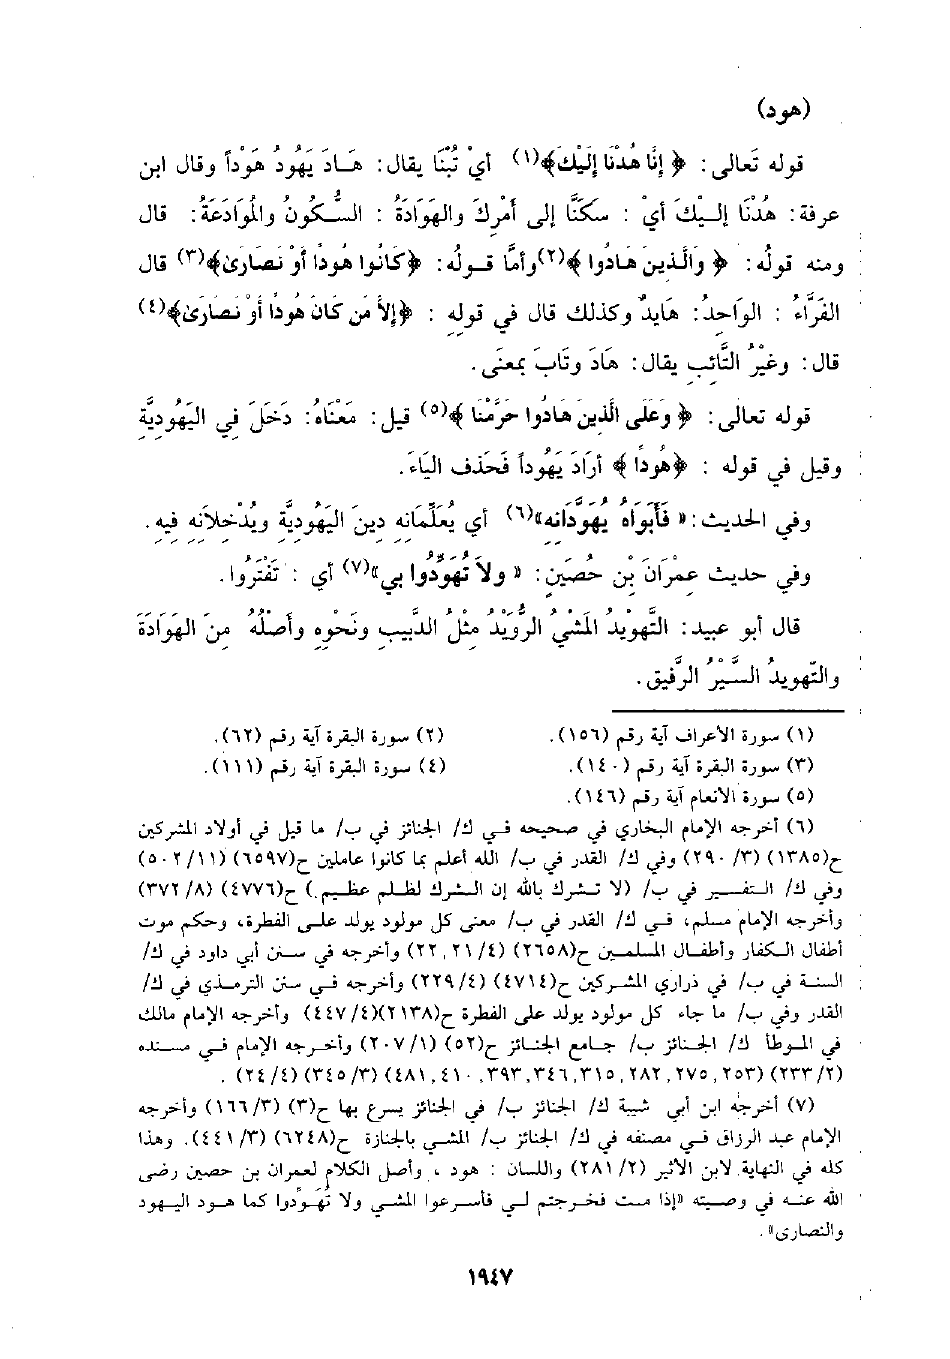 (هود)
قوله تَعالى: ﴿ إِنَّا هُدْنَا إِلَيْكَ﴾(١) أيْ تُبْنَا يقال: هَـادَ يَهُودُ هَوْداً وقال ابن
عرفة: هُدْنَا إلـيْكَ أيْ : سكنَّا إلى أمْرِكَ والهَوَادَةُ : السُّكونُ والمُوَادَعَةُ: قال
ومنه قولُه: ﴿ وَالَّذِينَ هَادُوا ﴾(٢)وأمَّا قـولُه: ﴿كَانُوا هُودًا أَوْ نَصَارَىٰ﴾(٣) قال
الفَرَّاءُ : الوَاحِدُ: هَايِدٌ وكذلك قال في قولِهِ : ﴿إِلاَّ مَن كَانَ هُودًا أَوْ نَصَارَىٰ﴾(٤)
قال: وغَيْرُ التَّائبِ يقال: هَادَ وتَابَ بمعنَى.
قوله تعالَى: ﴿ وَعَلَى الَّذِينَ هَادُوا حَرَّمْنَا ﴾(٥) قيل: مَعْنَاهُ: دَخَلَ فِي اليَهُودِيَّةِ
وقيل في قوله : ﴿هُودًا ﴾ أرَادَ يَهُوداً فَحَذف اليَاءَ.
وفي الحديث:« فَأَبَوَاهُ يُهَوِّدَانِه»(٦) أي يُعَلِّمَانِهِ دينَ اليَهُوديَّةِ ويُدْخِلاَنِهِ فِيهِ.
وفي حديث عِمْرَانَ بنِ حُصَينٍ: « ولاَ تُهَوِّدُوا بي»(٧) أي : تَفْتُروا.
قال أبو عبيد: التَّهْوِيدُ المَشْيُ الرُّوَيْدُ مثْلُ الدَّبِيبِ ونَحْوِهِ وأصْلُهُ مِنَ الهَوَادَةِ
والتَّهوِيدُ السَّيْرُ الرَّفيق.
(١) سورة الأعراف آية رقم (١٥٦). (٢) سورة البقرة آية رقم (٦٢).
(٣) سورة البقرة آية رقم (١٤٠). (٤) سورة البقرة آية رقم (١١١).
(٥) سورة الأنعام آية رقم (١٤٦).
(٦) أخرجه الإمام البخاري في صحيحه فـي ك/ الجنائز في ب/ ما قيل في أولاد المشركين
ح(١٣٨٥) (٣/ ٢٩٠) وفي ك/ القدر في ب/ الله أعلم بما كانوا عاملين ح(٦٥٩٧) (١١/ ٥٠٢)
وفي ك/ التفـسير في ب/ (لا تـشرك بالله إن الـشرك لظـلم عظـيم.) ح(٤٧٧٦) (٨/ ٣٧٢)
وأخرجه الإمام مسلم، فـي ك/ القدر في ب/ معنى كل مولود يولد علـى الفطرة، وحكم موت
أطفال الـكفار وأطفـال المسلمـين ح(٢٦٥٨) (٤/ ٢١, ٢٢) وأخرجه في سـنن أبي داود في ك/
السنـة في ب/ في ذراري المشـركين ح(٤٧١٤) (٤/ ٢٢٩) وأخرجه فـي سنن الترمـذي في ك/
القدر وفي ب/ ما جاء كل مولود يولد على الفطرة ح(٢١٣٨)(٤/ ٤٤٧) وأخرجه الإمام مالك
في المـوطأ ك/ الجـنائز ب/ جـامع الجنائز ح(٥٢) (١/ ٢٠٧) وأخـرجه الإمام فـي مـسنده
(٢/ ٢٣٣) (٢٥٣, ٢٧٥, ٢٨٢, ٣١٥, ٣٤٦, ٣٩٣, ٤١٠, ٤٨١) (٣/ ٣٤٥) (٤/ ٢٤) .
(٧) أخرجه ابن أبي شيبة ك/ الجنائز ب/ في الجنائز يسرع بها ح(٣) (٣/ ١٦٦) وأخرجه
الإمام عبد الرزاق فـي مصنفه في ك/ الجنائز ب/ المشـي بالجنازة ح(٦٢٤٨) (٣/ ٤٤١). وهذا
كله في النهاية لابن الأثير (٢/ ٢٨١) واللسان : هود ، وأصل الكلام لعمران بن حصين رضى
الله عنـه في وصيته «إذا مـت فخـرجتم لـي فأسـرعوا المشـي ولا تُهوِّدوا كما هـود اليـهود
والنصارى».
١٩٤٧